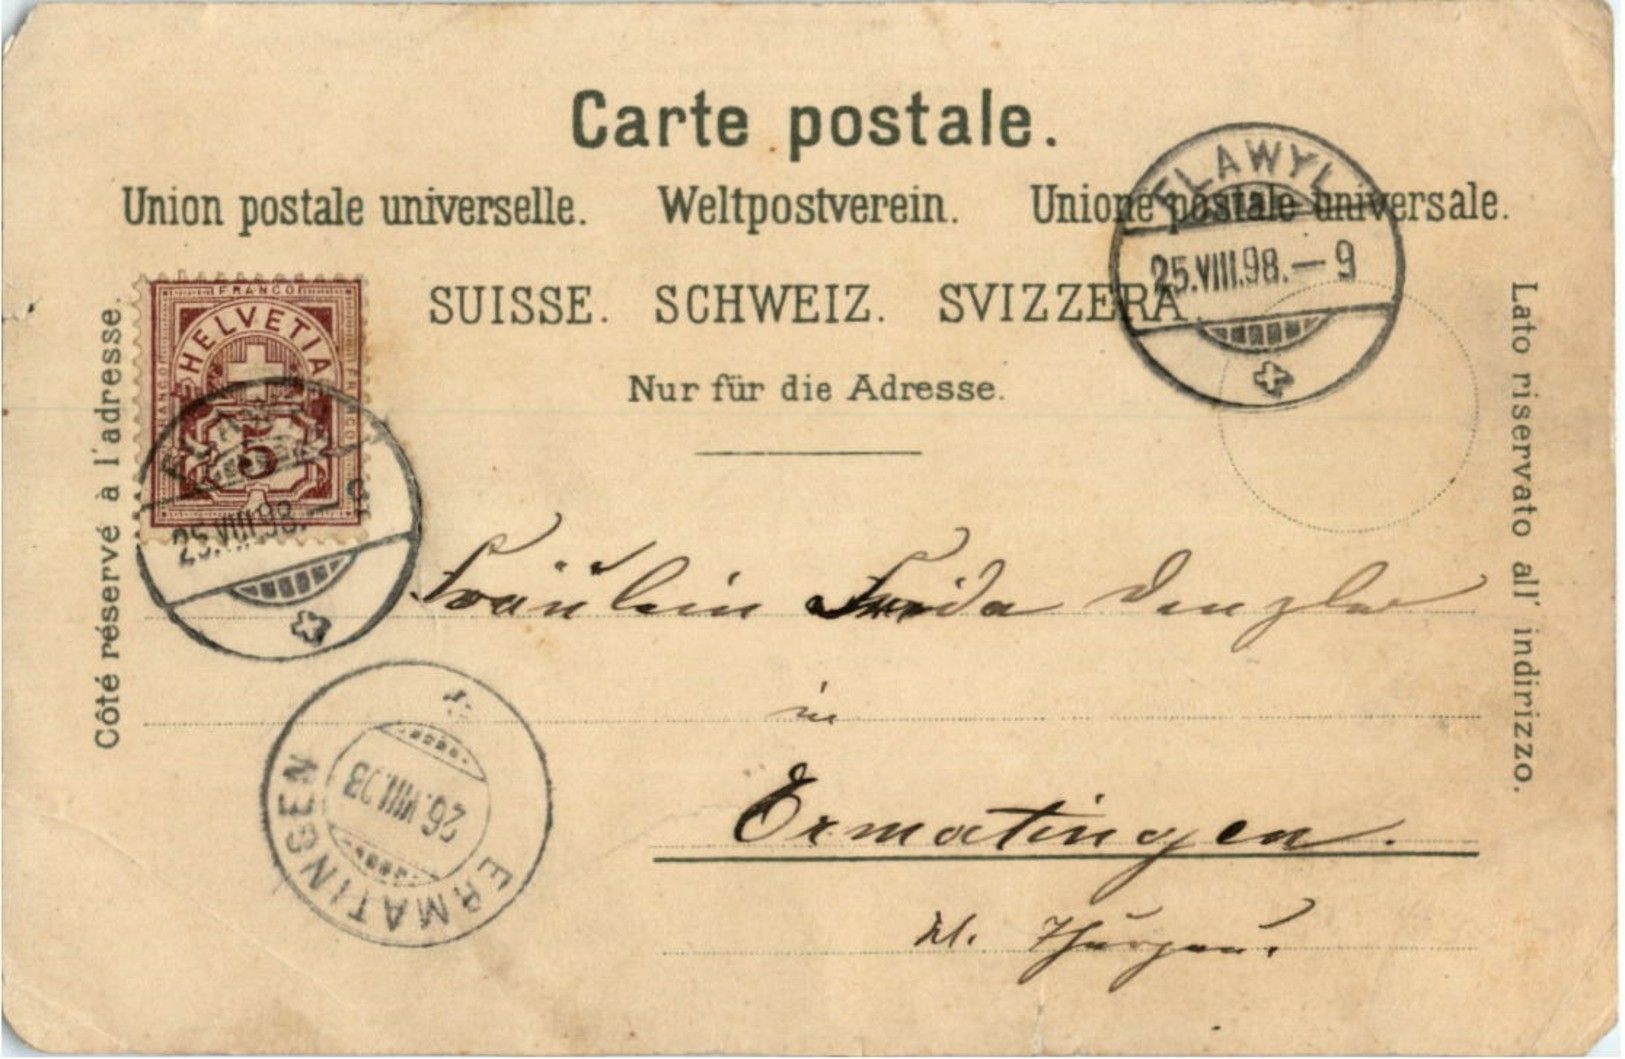 Carte postale.
Union postale universelle. Weltpostverein. Unione postale universale.
SUISSE. SCHWEIZ. SVIZZERA.
Nur für die Adresse.
Côté réservé à l'adresse.
Lato riservato all' indirizzo.
FRANCO
FRANCO
FRANCO
HELVETIA
5
FLAWYL
25.VIII.98.–9
FLAWYL
25.VIII.98.–9
Fräulein Frida Denzler
in
Ermatingen.
Kt. Thurgau.
ERMATINGEN
26.VIII.98